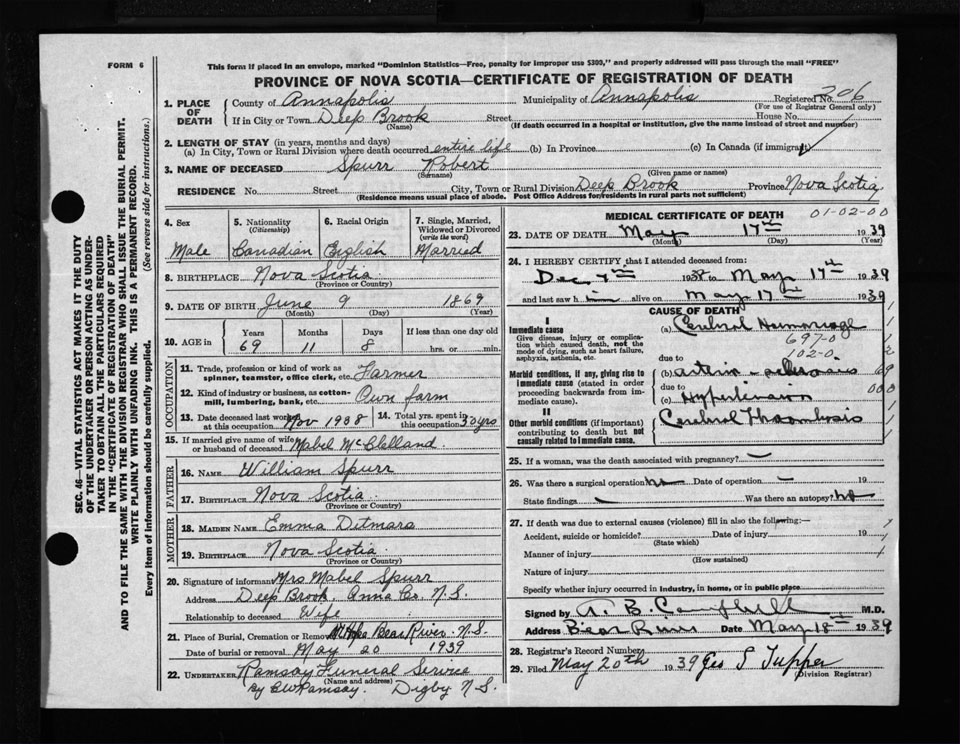 FORM 6
This form if placed in an envelope, marked "Dominion Statistics—Free, penalty for improper use $300," and properly addressed will pass through the mail "FREE"
PROVINCE OF NOVA SCOTIA—CERTIFICATE OF REGISTRATION OF DEATH
SEC. 46—VITAL STATISTICS ACT MAKES IT THE DUTY
OF THE UNDERTAKER OR PERSON ACTING AS UNDER-
TAKER TO OBTAIN ALL THE PARTICULARS REQUIRED
IN THE "CERTIFICATE OF REGISTRATION OF DEATH"
AND TO FILE THE SAME WITH THE DIVISION REGISTRAR WHO SHALL ISSUE THE BURIAL PERMIT.
WRITE PLAINLY WITH UNFADING INK. THIS IS A PERMANENT RECORD.
Every item of information should be carefully supplied. (See reverse side for instructions.)
1. PLACE OF DEATH County of Annapolis Municipality of Annapolis Registered No. 206
(For use of Registrar General only)
If in City or Town Deep Brook Street House No.
(Name) (If death occurred in a hospital or institution, give the name instead of street and number)
2. LENGTH OF STAY (in years, months and days)
(a) In City, Town or Rural Division where death occurred entire life (b) In Province (c) In Canada (if immigrant)
3. NAME OF DECEASED Spurr Robert
(Surname) (Given name or names)
RESIDENCE No. Street City, Town or Rural Division Deep Brook Province Nova Scotia
(Residence means usual place of abode. Post Office Address for residents in rural parts not sufficient)
4. Sex Male
5. Nationality (Citizenship) Canadian
6. Racial Origin English
7. Single, Married, Widowed or Divorced (write the word) Married
8. BIRTHPLACE Nova Scotia
(Province or Country)
9. DATE OF BIRTH June 9 1869
(Month) (Day) (Year)
10. AGE in Years Months Days If less than one day old
69 11 8 hrs. or min.
OCCUPATION
11. Trade, profession or kind of work as
spinner, teamster, office clerk, etc. Farmer
12. Kind of industry or business, as cotton-
mill, lumbering, bank, etc. Own farm
13. Date deceased last worked at this occupation Nov 1938
14. Total yrs. spent in this occupation 50 yrs
15. If married give name of wife
or husband of deceased Mabel McClelland
FATHER
16. NAME William Spurr
17. BIRTHPLACE Nova Scotia
(Province or Country)
MOTHER
18. MAIDEN NAME Emma Ditmars
19. BIRTHPLACE Nova Scotia
(Province or Country)
20. Signature of informant Mrs Mabel Spurr
Address Deep Brook. Anna Co. N.S.
Relationship to deceased Wife
21. Place of Burial, Cremation or Removal Mt Hope Bear River. N.S.
Date of burial or removal May 20 1939
22. UNDERTAKER Ramsay Funeral Service
(Name and address)
by Ramsay. Digby N.S.
MEDICAL CERTIFICATE OF DEATH 01-02-00
23. DATE OF DEATH May 17th 1939
(Month) (Day) (Year)
24. I HEREBY CERTIFY that I attended deceased from:
Dec 7th 1938 to May 17th 1939
and last saw him alive on May 17th 1939
CAUSE OF DEATH
I
Immediate cause (a) Cerebral Hemorrage
Give disease, injury or complica-
tion which caused death, not the
mode of dying, such as heart failure,
asphyxia, asthenia, etc.
697-0
102-0
due to
Morbid conditions, if any, giving rise to
immediate cause (stated in order
proceeding backwards from im-
mediate cause).
(b) arterio-sclerosis
due to
(c) Hypertension
II
Other morbid conditions (if important)
contributing to death but not
causally related to immediate cause.
Cerebral Thrombosis
25. If a woman, was the death associated with pregnancy? —
26. Was there a surgical operation no Date of operation — 19
State findings Was there an autopsy? no
27. If death was due to external causes (violence) fill in also the following:—
Accident, suicide or homicide? Date of injury 19
(State which)
Manner of injury
(How sustained)
Nature of injury
Specify whether injury occurred in Industry, in home, or in public place
Signed by A. B. Campbell M.D.
Address Bear River Date May 18th 1939
28. Registrar's Record Number
29. Filed May 20th 1939 Geo S Tupper
(Division Registrar)